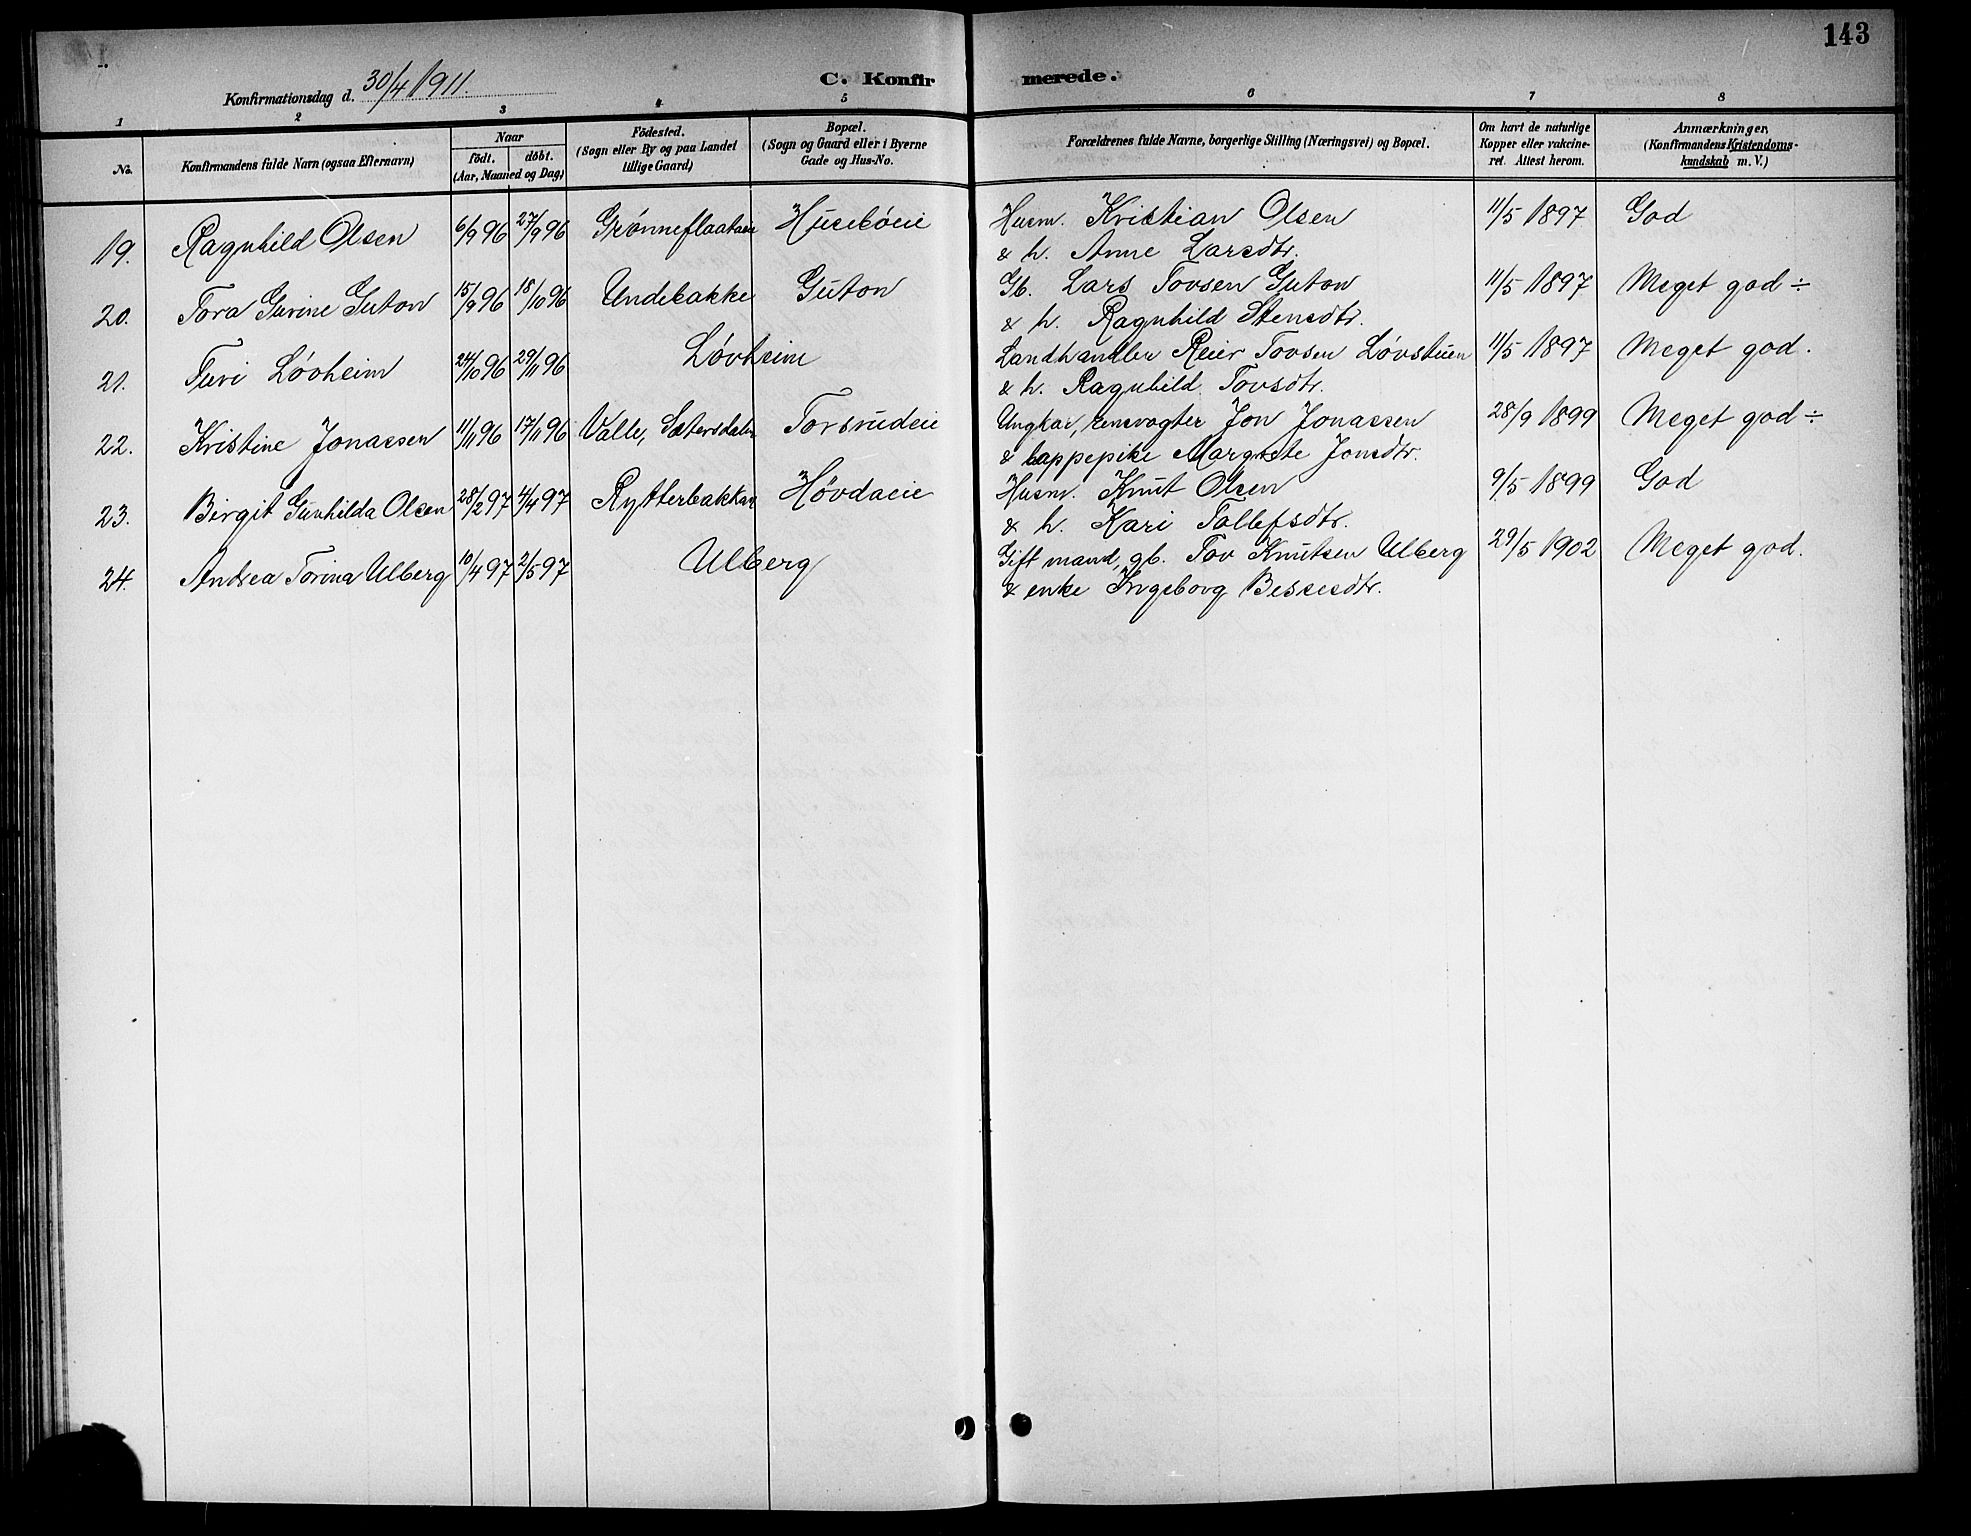 143
Konfirmationsdag d. 30/4 1911.
C. Konfirmerede.
1 2 3 4 5 6 7 8
No. Konfirmandens fulde Navn (ogsaa Efternavn) Naar födt. döbt. (Aar, Maaned og Dag) Födested. (Sogn eller By og paa Landet tillige Gaard) Bopæl. (Sogn og Gaard eller i Byerne Gade og Hus-No. Forældrenes fulde Navne, borgerlige Stilling (Næringsvei) og Bopæl. Om havt de naturlige Kopper eller vakcineret. Attest herom. Anmærkninger, (Konfirmandens Kristendomskundskab m. V.)
19. Ragnhild Olsen 6/9 96 27/9 96 Grønneflaataeie Husebøeie Husm. Kristian Olsen 11/5 1897 God
& h. Anne Larsdtr.
20. Tora Gurine Guton 15/9 96 18/10 96 Undebakke Guton Gb. Lars Tovsen Guton 11/5 1897 Meget god ÷
& h. Ragnhild Stensdtr.
21. Turi Lövheim 24/10 96 29/11 96 Lövheim Landhandler Reier Tovsen Lövstuen 11/5 1897 Meget god.
& h. Ragnhild Tovsdtr.
22. Kristine Jonassen 11/11 96 17/11 96 Valle, Sætersdalen Torsrudeie Ungkar, rensvogter Jon Jonassen 28/9 1899 Meget god ÷
& lappepike Margrete Jonsdtr.
23. Birgit Gunhilda Olsen 28/2 97 4/4 97 Rytterbakkan Høvdaeie Husm. Knut Olsen 9/5 1899 God
& h. Kari Tollefsdtr.
24. Andrea Torina Ulberg 10/4 97 2/5 97 Ulberg Gift mand, gb. Tov Knutsen Ulberg 29/5 1902 Meget god.
& enke Ingeborg Bessesdtr.